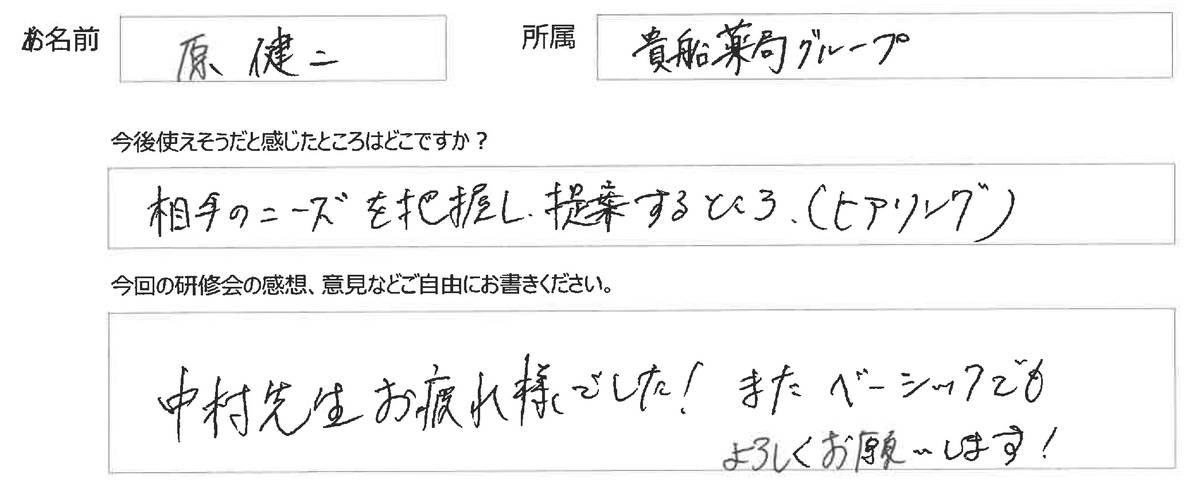 お名前 原 健二 所属 貴船薬局グループ
今後使えそうだと感じたところはどこですか？
相手のニーズを把握し、提案するところ、(ヒアリング)
今回の研修会の感想、意見などご自由にお書きください。
中村先生お疲れ様でした！ またベーシックでも
よろしくお願いします！